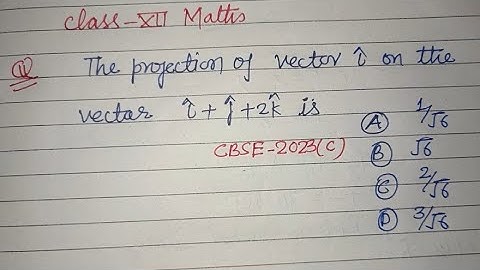 Class-XII Maths
Q The projection of vector î on the
vector î + ĵ + 2k̂ is
CBSE-2023(C)
A 1/√6
B √6
C 2/√6
D 3/√6